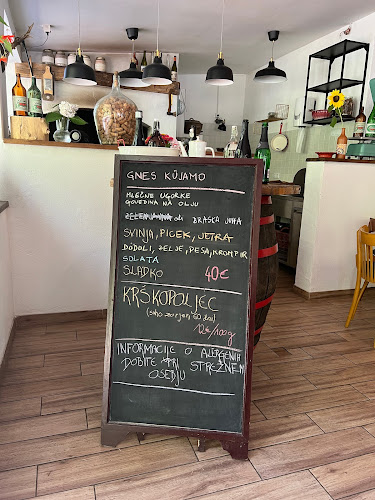 GNES KÜJAMO
MLEČNE UGORKE
GOVEDINA NA OLJU
ali DRAŠČA JUHA
SVINJA, PICEK, JETRA
DÖDOLI, ZELJE, PESA, KROMPIR
SOLATA
SLADKO 40€
KRŠKOPOLJEC
12€/100g
INFORMACIJE O ALERGENIH
DOBITE PRI STREŽNEM
OSEDJU